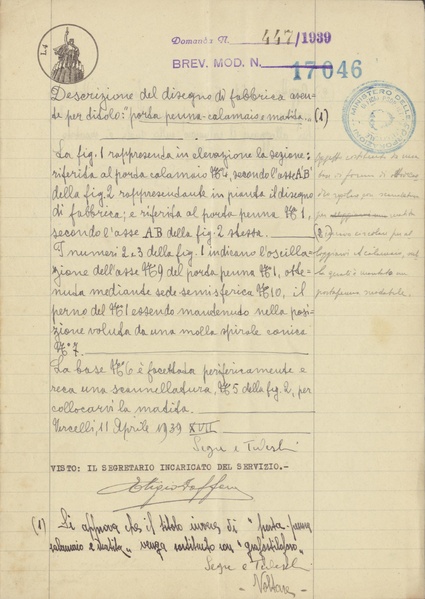 L4
Domanda N. 447/1939
BREV. MOD. N. 17046
MINISTERO DELLE CORPORAZIONI
Descrizione del disegno di fabbrica aven-
te per titolo: "porta penna-calamaio e matita„ (1)
La fig. 1 rappresenta in elevazione la sezione:
riferita al porta calamaio N° 4, secondo l'asse A'B'
della fig. 2 rappresentante in pianta il disegno
di fabbrica; e riferita al porta penna N° 1,
secondo l'asse AB della fig. 2 stessa.
I numeri 2 e 3 della fig. 1 indicano l'oscilla-
zione dell'asse N° 9 del porta penna N° 1, otte-
nuta mediante sede semisferica N° 10, il
perno del N° 1 essendo mantenuto nella posi-
zione voluta da una molla spirale conica
N° 7.
La base N° 6 è faccettata perifericamente e
reca una scannellatura, N° 5 della fig. 2, per
collocarvi la matita.
Vercelli, 11 Aprile 1939 XVII
Segre e Tedeschi
VISTO: IL SEGRETARIO INCARICATO DEL SERVIZIO.-
(1) Si approva che il titolo invece di "porta-penna
calamaio e matita„ venga sostituito con "grafostiloforo„
Segre e Tedeschi